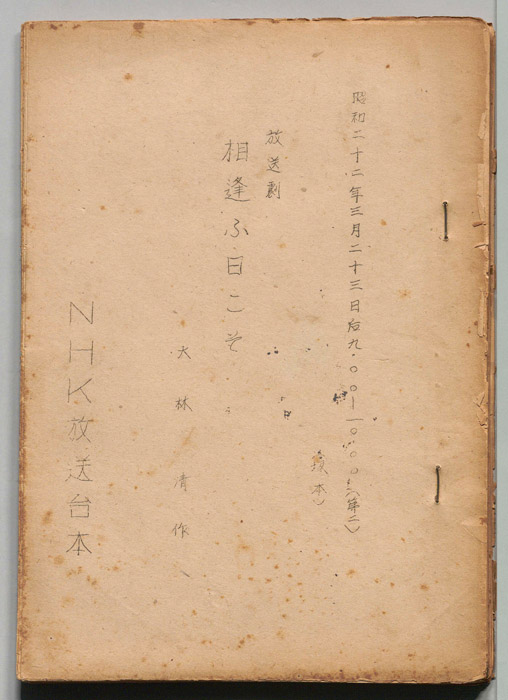 昭和二十二年三月二十三日后九・〇〇―一〇・〇〇(第二)
放送劇
相逢ふ日こそ
大林清作
NHK放送台本